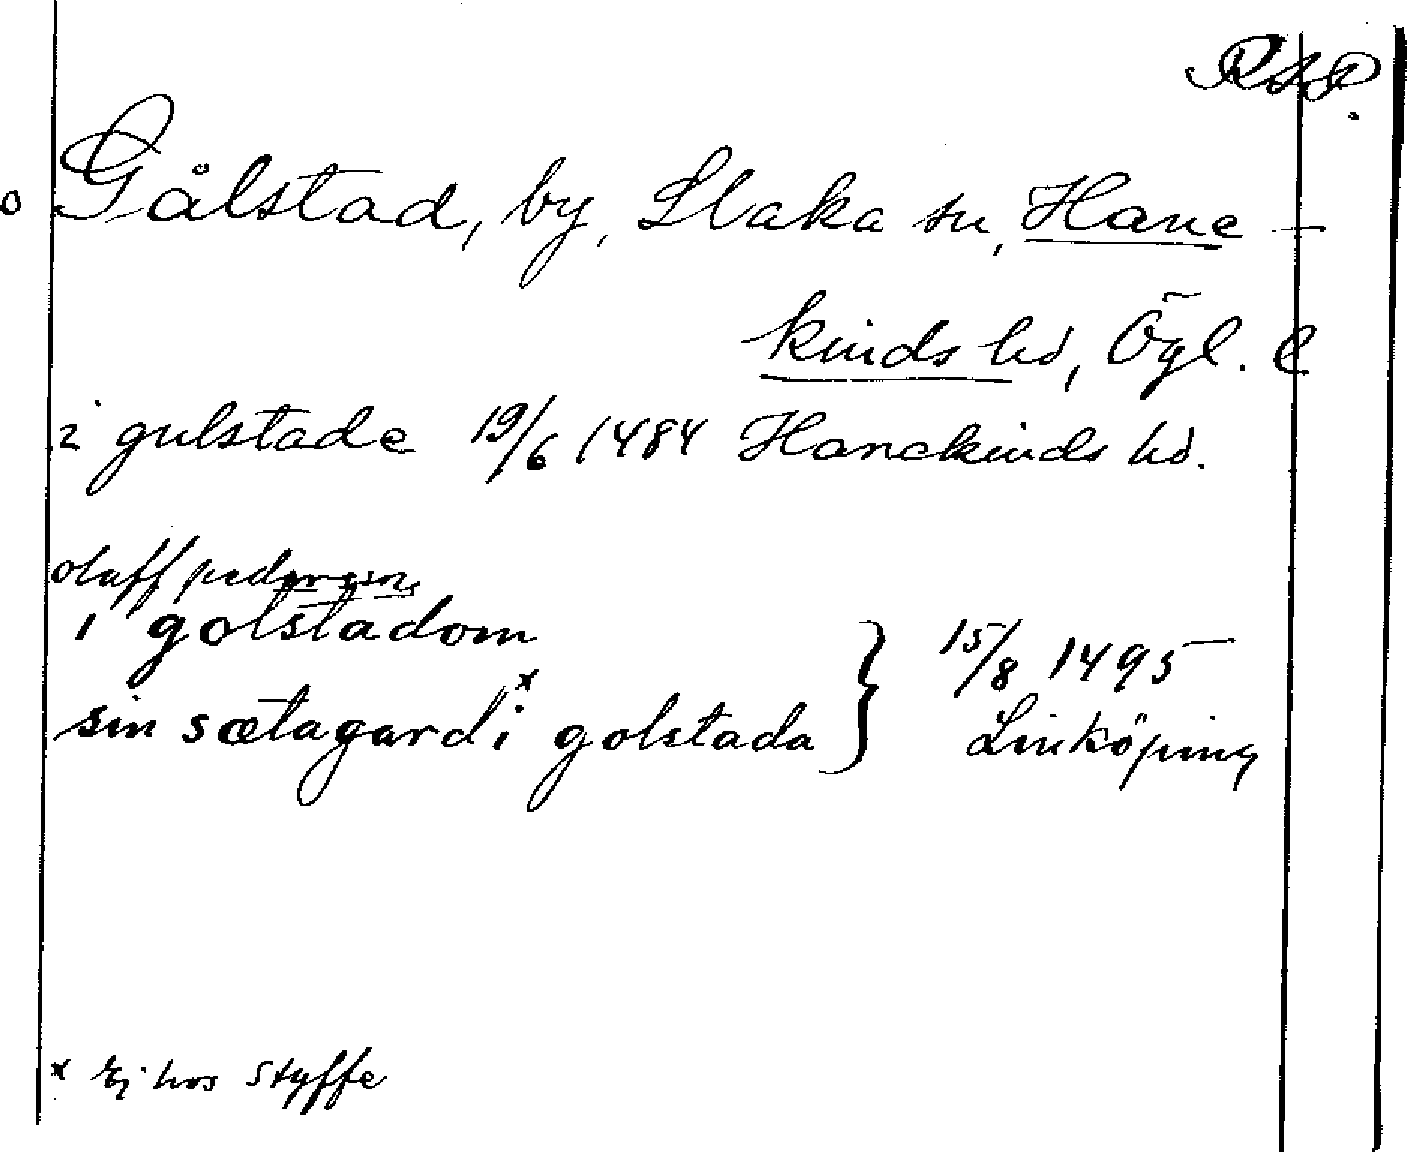 RAP.
Gålstad, by, Slaka sn, Hane-
kinds hd, Ögl. E
i gulstade 19/6 1484 Hanekinds hd.
olaff pedersson
i golstadom
sin sætagard i x golstada } 15/8 1495
Linköping
x Ej hos Styffe